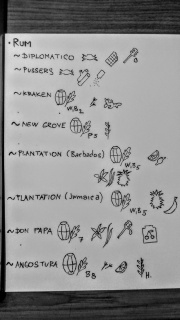 • RUM
~ DIPLOMATICO
~ PUSSERS
~ KRAKEN
W.B2
~ NEW GROVE
P5
~ PLANTATION (Barbados)
W.B5
~ PLANTATION (Jamaica)
W.B5
~ DON PAPA 7
~ ANGOSTURA
B8 H.